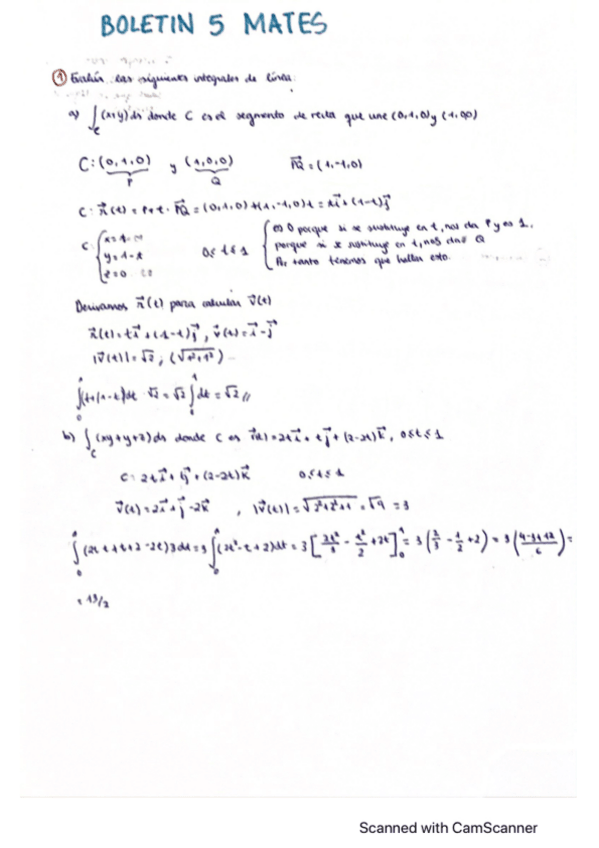 BOLETIN 5 MATES
① las siguientes integrales de línea:
a) ∫_C (x+y) ds donde C es el segmento de recta que une (0,1,0) y (1,0,0)
C: (0,1,0) y (1,0,0) PQ = (1,-1,0)
P Q
C: r(t) = P+t·PQ = (0,1,0)+(1,-1,0)t = ti+(1-t)j
C: { 0≤t≤1 { es 0 porque si se sustituye en t, nos da P y es 1,
y=1-t porque si se sustituye en t, nos da Q
z=0 Por tanto tenemos que hallar esto.
Derivamos r(t) para calcular v(t)
r(t)=ti+(1-t)j, v(t)=i-j
|v(t)|=√2; (√1²+1²)
∫₀¹ (t+1-t)dt √2 = √2 ∫₀¹ dt = √2 //
b) ∫_C (xy+y+z) ds donde C es r(t)=2ti+tj+(2-2t)k, 0≤t≤1
C: 2ti+tj+(2-2t)k 0≤t≤1
v(t)=2i+j-2k , |v(t)|=√2²+2²+1=√9=3
∫₀¹ (2t·t+t+2-2t)3dt=3∫₀¹(2t²-t+2)dt=3[2t³/3 - t²/2 + 2t]₀¹=3(2/3 - 1/2 +2)=3(4-3+12/6)=
=13/2
Scanned with CamScanner